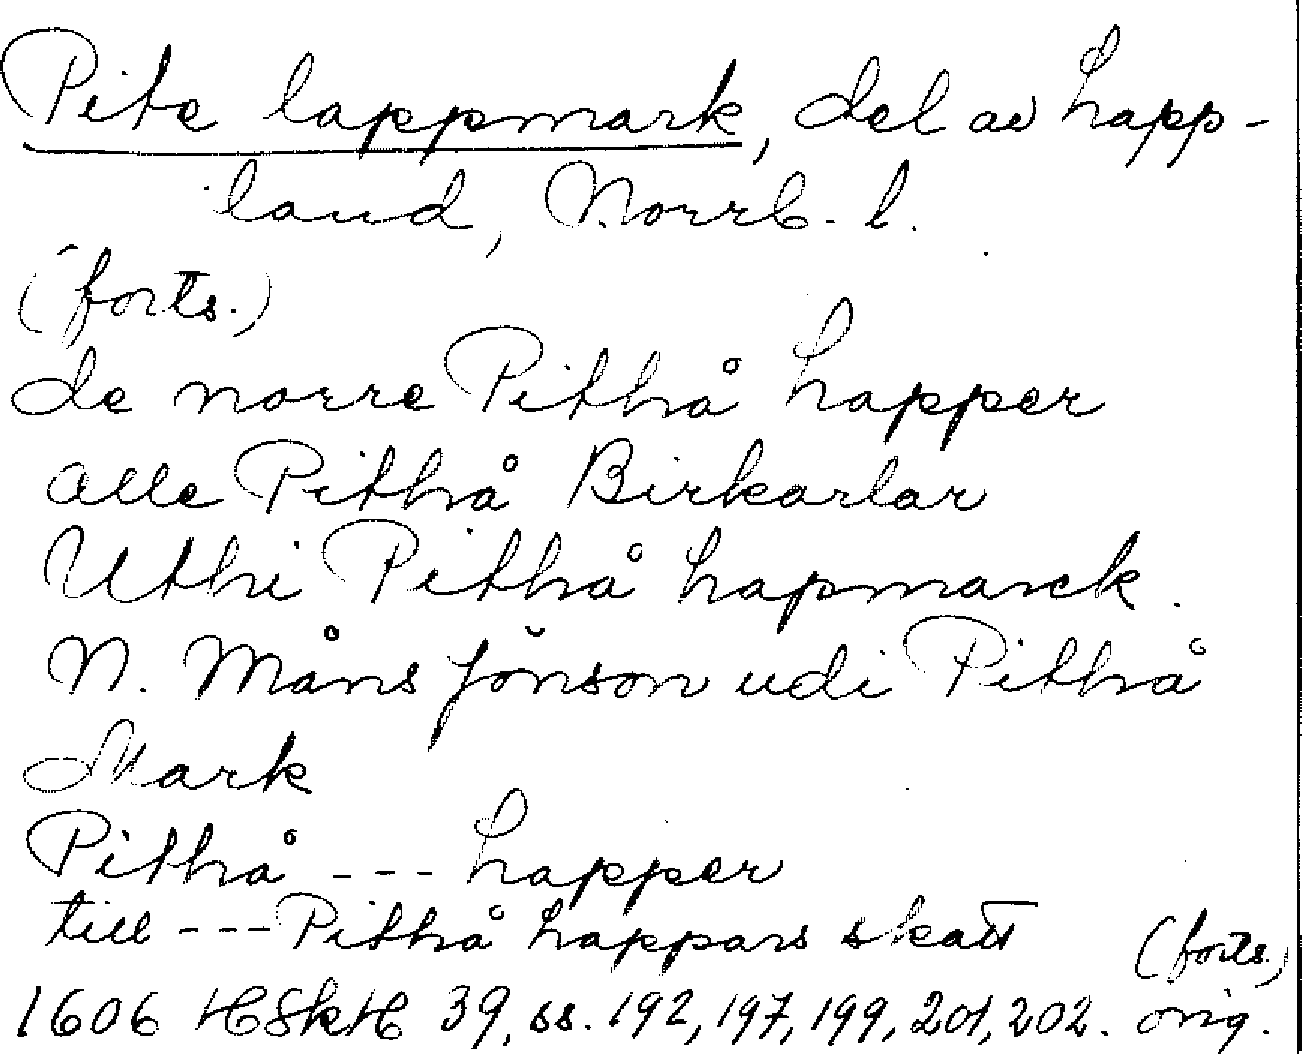 Pite lappmark, del av Lapp-
land, Norrb. l.
(forts.)
de norre Pithå Lapper
alle Pithå Birkarlar
Uthi Pithå Lapmarck.
N. Måns Jönson udi Pithå
Mark
Pithå --- Lapper
till --- Pithå Lappars skatt (forts.)
1606 HSkH 39, ss. 192, 197, 199, 201, 202. orig.